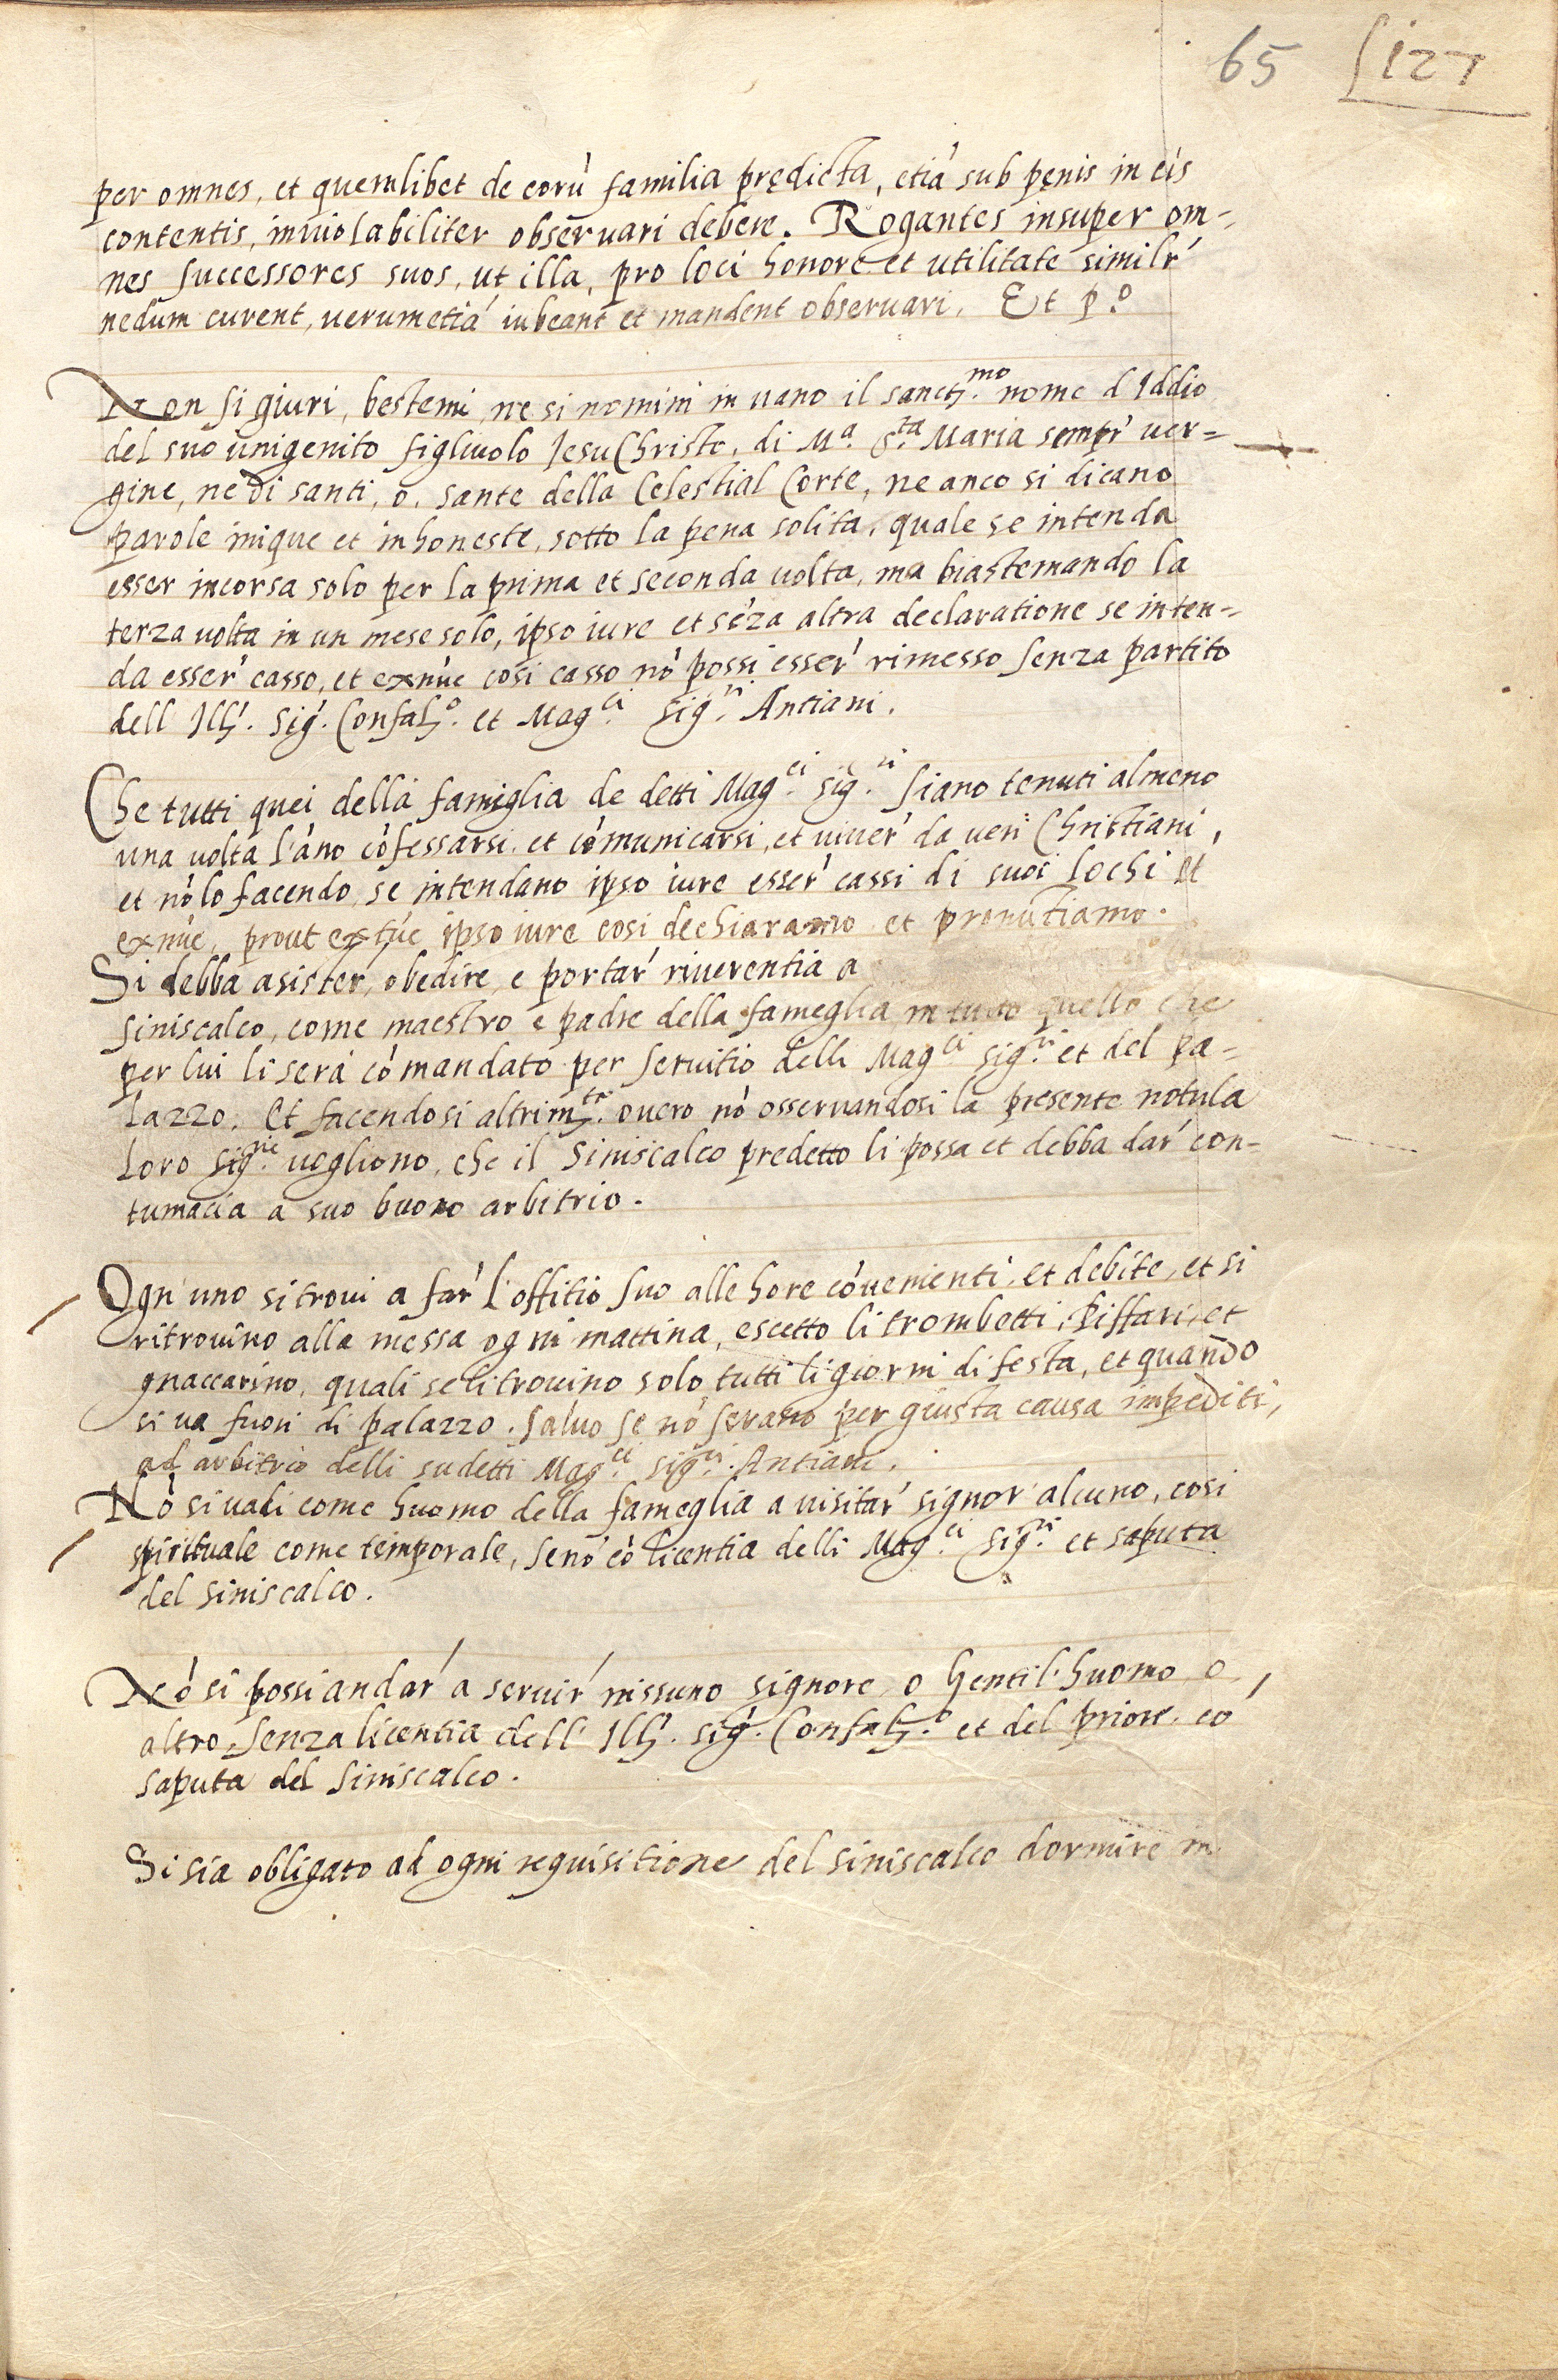 65 127
per omnes, et quemlibet de eorú familia prędicta, etiá sub pęnis in eis
contentis, inuiolabiliter obseruari debere. Rogantes insuper om-
nes successores suos, ut illa, pro loci honore et utilitate similr'
nedum curent, uerumetiá iubeant et mandent obseruari. Et p.º
Non si giuri, bestemi, ne si nomini in uano il sanctᵐᵒ. nome d Iddio
del suo unigenito figliuolo Iesu Christo, di Mª. S.ᵗᵃ Maria sempr' uer=
gine, ne di santi, o, sante della Celestial Corte, ne anco si dicano
parole inique et inhoneste, sotto la pena solita, quale se intenda
esser incorsa solo per la prima et seconda uolta, ma biastemando la
terza uolta in un mese solo, ipso iure et séza altra declaratione se inten=
da esser' casso, et exnúc cosi casso nó possi esser' rimesso senza partito
dell Ill'. Sig'. Confal.º et Mag.ᶜⁱ Sig.ʳⁱ Antiani.
Che tutti quei della famiglia de detti Mag.ᶜⁱ Sig.ʳⁱ siano tenuti almeno
una uolta l'áno cófessarsi, et cómunicarsi, et uiuer' da ueri Christiani,
et nó lo facendo, se intendano ipso iure esser' cassi di suoi lochi et
exnúc, prout extúc ipso iure cosi dechiaramo et pronútiamo.
Si debba asister', obedire, e portar' riuerentia a
siniscalco, come maestro e padre della fameglia in tutto quello che
per lui li será cómandato per seruitio delli Mag.ᶜⁱ Sig.ʳⁱ et del pa=
lazzo. Et facendosi altrim.ᵗᵉ ouero nó osseruandosi la presente notula
loro Sig.ʳⁱᵉ uogliono, che il Siniscalco predetto li possa et debba dar' con-
tumacia a suo buono arbitrio.
Ogn'uno si troui a far' l'offitio suo alle hore cóuenienti, et debite, et si
ritrouino alla messa ogni mattina, escetto li trombetti, Piffari, et
gnaccarino, quali se li trouino solo tutti li giorni di festa, et quando
si ua fuori di palazzo. Saluo se nó serano per giusta causa impediti,
ad arbitrio delli sudetti Mag.ᶜⁱ Sig.ʳⁱ Antiani.
Nó si uadi come huomo della fameglia a uisitar' signor alcuno, cosi
spirituale come temporale, senó có licentia delli Mag.ᶜⁱ Sig.ʳⁱ et saputa
del siniscalco.
Nó si possi andar' a seruir' nissuno signore, o Gentil'huomo, o,
altro, senza licentia dell' Ill'. Sig'. Confal.º et del priore, co
saputa del Siniscalco.
Si sia obligato ad ogni requisitione del siniscalco dormire in